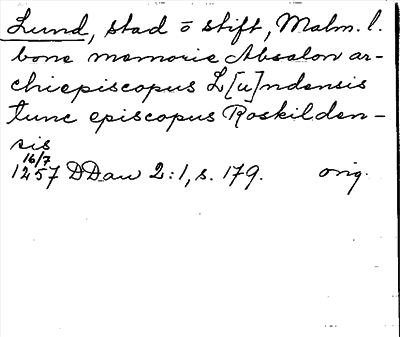 Lund, stad o stift, Malm. l.
bone memorie Absalon ar-
chiepiscopus L[u]ndensis
tunc episcopus Roskilden-
sis
16/7
1257 DDan 2:1, s. 179. orig.